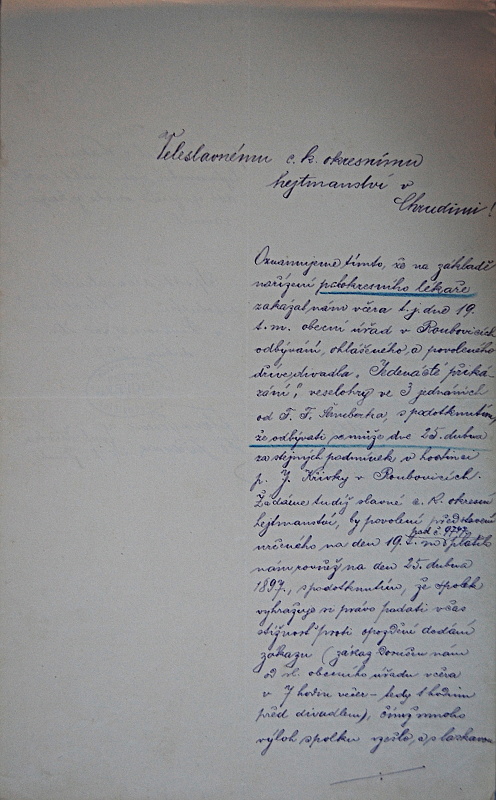 Veleslavnému c. k. okresnímu
hejtmanství v
Chrudimi!
Oznamujeme tímto, že na základě
nařízení p. obokresního lékaře
zakázal nám včera t. j. dne 19.
t. m. obecní úřad v Roubovicích
odbývání, ohlášeného a povoleného
dříve divadla "Jedenácté přiká-
zání", veselohry ve 3 jednáních
od F. F. Šamberka, s podotknutím,
že odbývati se může dne 25. dubna
za stejných podmínek v hostinci
p. J. Křivky v Roubovicích.
Žádáme tudíž slavné c. k. okresní
hejtmanství, by povolení představení
pod č. 9747
určeného na den 19. t. m. platilo
nám rovněž na den 25. dubna
1897., s podotknutím, že spolek
vyhražuje si právo podati včas
stížnost proti opozdění dodání
zákazu (zákaz doručen nám
od sl. obecního úřadu včera
v 7 hodin večer - tedy 1 hodinu
před divadlem), čímž mnoho
výloh spolku vzešlo, a s laskavou